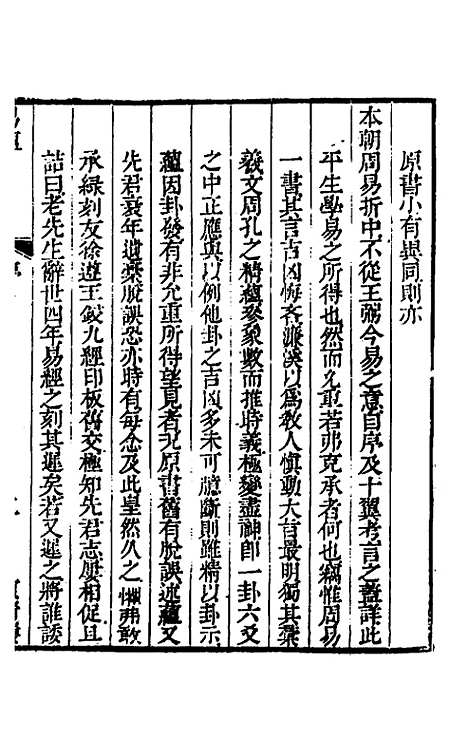 原書小有異同則亦
本朝周易折中不從王弼今易之意自序及十翼考言之蓋詳此
平生學易之所得也然而允重若弗克承者何也竊惟周易
一書其言吉凶悔吝濂溪以爲教人愼動大旨最明獨其彖
羲文周孔之精蘊象數而推時義極變盡神卽一卦六爻
之中正應與以例他卦之吉凶多未可臆斷則雖精以卦示
蘊因卦發有非允重所得望見者况原書舊有脫誤述蘊又
先君衰年遺藁脫誤恐亦時有每念及此皇然久之懶弗敢
承綠刻友徐遵王鋟九經印板舊交極知先君志屢相促且
詰曰老先生辭世四年易經之刻其遲矣若又遲之將誰諉
序